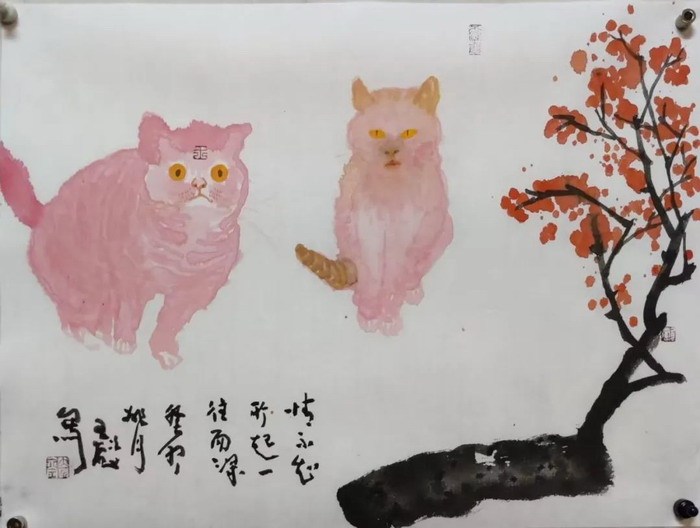 情不知
所起一
往而深
癸卯
桃月
王
寫